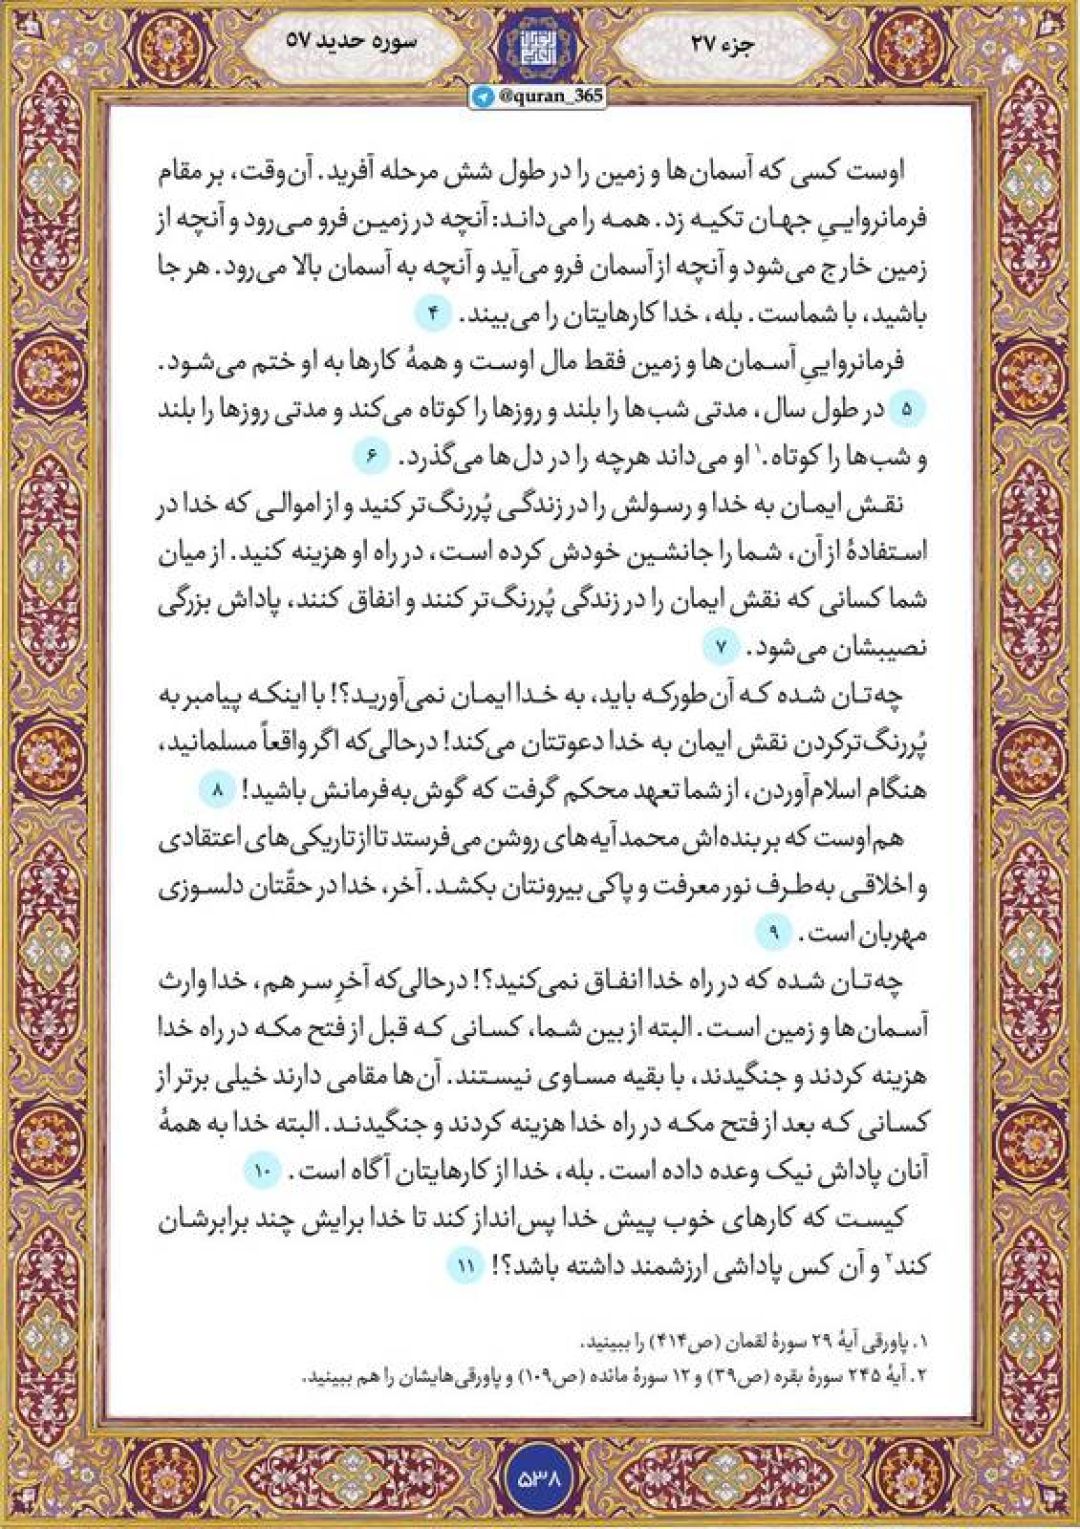 جزء ۲۷
سوره حدید ۵۷
@quran_365
اوست کسی که آسمان‌ها و زمین را در طول شش مرحله آفرید. آن‌وقت، بر مقام
فرمانرواییِ جهان تکیه زد. همه را می‌داند: آنچه در زمین فرو می‌رود و آنچه از
زمین خارج می‌شود و آنچه از آسمان فرو می‌آید و آنچه به آسمان بالا می‌رود. هر جا
باشید، با شماست. بله، خدا کارهایتان را می‌بیند. ۴
فرمانرواییِ آسمان‌ها و زمین فقط مال اوست و همهٔ کارها به او ختم می‌شود.
۵ در طول سال، مدتی شب‌ها را بلند و روزها را کوتاه می‌کند و مدتی روزها را بلند
و شب‌ها را کوتاه.۱ او می‌داند هرچه را در دل‌ها می‌گذرد. ۶
نقش ایمان به خدا و رسولش را در زندگی پُررنگ‌تر کنید و از اموالی که خدا در
استفادهٔ از آن، شما را جانشین خودش کرده است، در راه او هزینه کنید. از میان
شما کسانی که نقش ایمان را در زندگی پُررنگ‌تر کنند و انفاق کنند، پاداش بزرگی
نصیبشان می‌شود. ۷
چه‌تان شده که آن‌طورکه باید، به خدا ایمان نمی‌آورید؟! با اینکه پیامبر به
پُررنگ‌ترکردن نقش ایمان به خدا دعوتتان می‌کند! درحالی‌که اگر واقعاً مسلمانید،
هنگام اسلام‌آوردن، از شما تعهد محکم گرفت که گوش‌به‌فرمانش باشید! ۸
هم‌اوست که بر بنده‌اش محمد آیه‌های روشن می‌فرستد تا از تاریکی‌های اعتقادی
و اخلاقی به‌طرف نور معرفت و پاکی بیرونتان بکشد. آخر، خدا در حقّتان دلسوزی
مهربان است. ۹
چه‌تان شده که در راه خدا انفاق نمی‌کنید؟! درحالی‌که آخرِ سر هم، خدا وارث
آسمان‌ها و زمین است. البته از بین شما، کسانی که قبل از فتح مکه در راه خدا
هزینه کردند و جنگیدند، با بقیه مساوی نیستند. آن‌ها مقامی دارند خیلی برتر از
کسانی که بعد از فتح مکه در راه خدا هزینه کردند و جنگیدند. البته خدا به همهٔ
آنان پاداش نیک وعده داده است. بله، خدا از کارهایتان آگاه است. ۱۰
کیست که کارهای خوب پیش خدا پس‌انداز کند تا خدا برایش چند برابرشان
کند۲ و آن کس پاداشی ارزشمند داشته باشد؟! ۱۱
۱. پاورقی آیهٔ ۲۹ سورهٔ لقمان (ص۴۱۴) را ببینید.
۲. آیهٔ ۲۴۵ سورهٔ بقره (ص۳۹) و ۱۲ سورهٔ مائده (ص۱۰۹) و پاورقی‌هایشان را هم ببینید.
۵۳۸